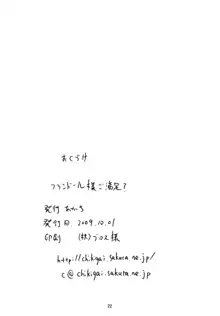 おくづけ
フランドール様ご満足?
発行 あかいろ
発行日 2009.10.01
印刷 (株)プロス様
http://chikigai.sakura.ne.jp/
c@chikigai.sakura.ne.jp
22